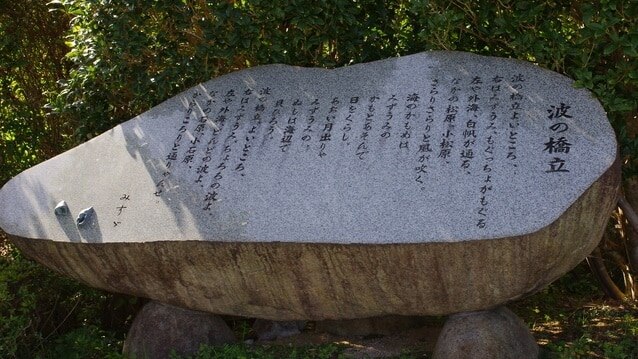 波の橋立
波の橋立よいところ、
右はみずうみ、もぐっちょがもぐる、
左や外海、白帆が通る、
なかの松原、小松原、
さらりさらりと風が吹く。
海のかもめは、
みずうみの
かもとあそんで
日をくらし、
あおい月出りゃ
みずうみの
ぬしは海辺で
貝ひろう。
波の橋立、よいところ、
右はみずうみ、ちょろろの波よ、
左や外海、どんどの波よ、
なかの石原、小石原、
からりころりと通りゃんせ
みすゞ